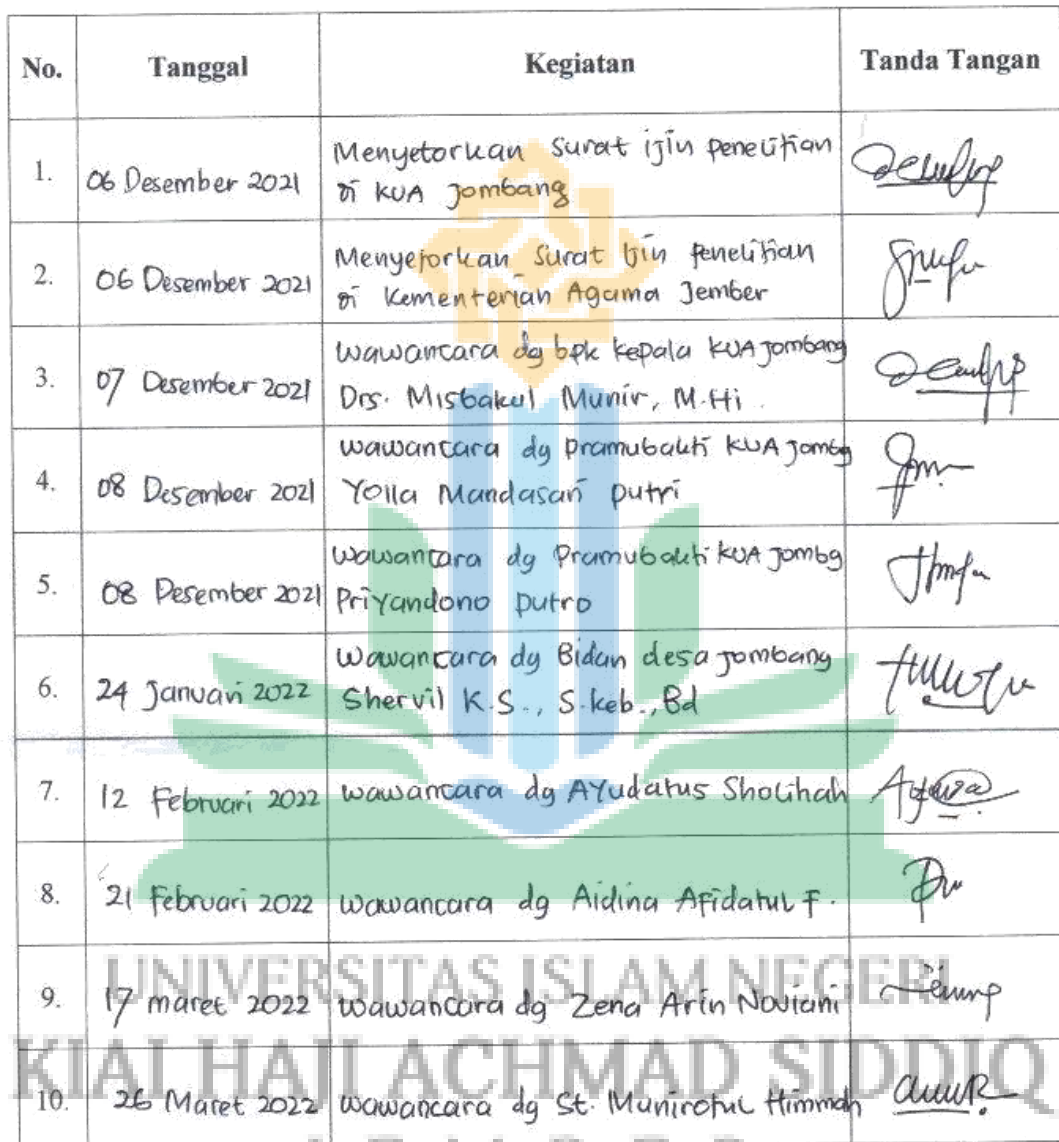 No. Tanggal Kegiatan Tanda Tangan
1. 06 Desember 2021 Menyetorkan Surat ijin penelitian
di KUA Jombang
2. 06 Desember 2021 Menyetorkan Surat Ijin penelitian
di Kementerian Agama Jember
3. 07 Desember 2021 Wawancara dg bpk kepala KUA Jombang
Drs. Misbakul Munir, M.Hi.
4. 08 Desember 2021 Wawancara dg Pramubakti KUA Jombg
Yolla Mandasari putri
5. 08 Desember 2021 Wawancara dg Pramubakti KUA Jombg
Priyandono putro
6. 24 Januari 2022 Wawancara dg Bidan desa Jombang
Shervil K.S., S.keb., Bd
7. 12 Februari 2022 wawancara dg AYudatus Sholihah
8. 21 Februari 2022 wawancara dg Aidina Afidatul F.
9. 17 maret 2022 wawancara dg Zena Arin Noviani
10. 26 Maret 2022 wawancara dg St. Munirotul Himmah
UNIVERSITAS ISLAM NEGERI
KIAI HAJI ACHMAD SIDDIQ